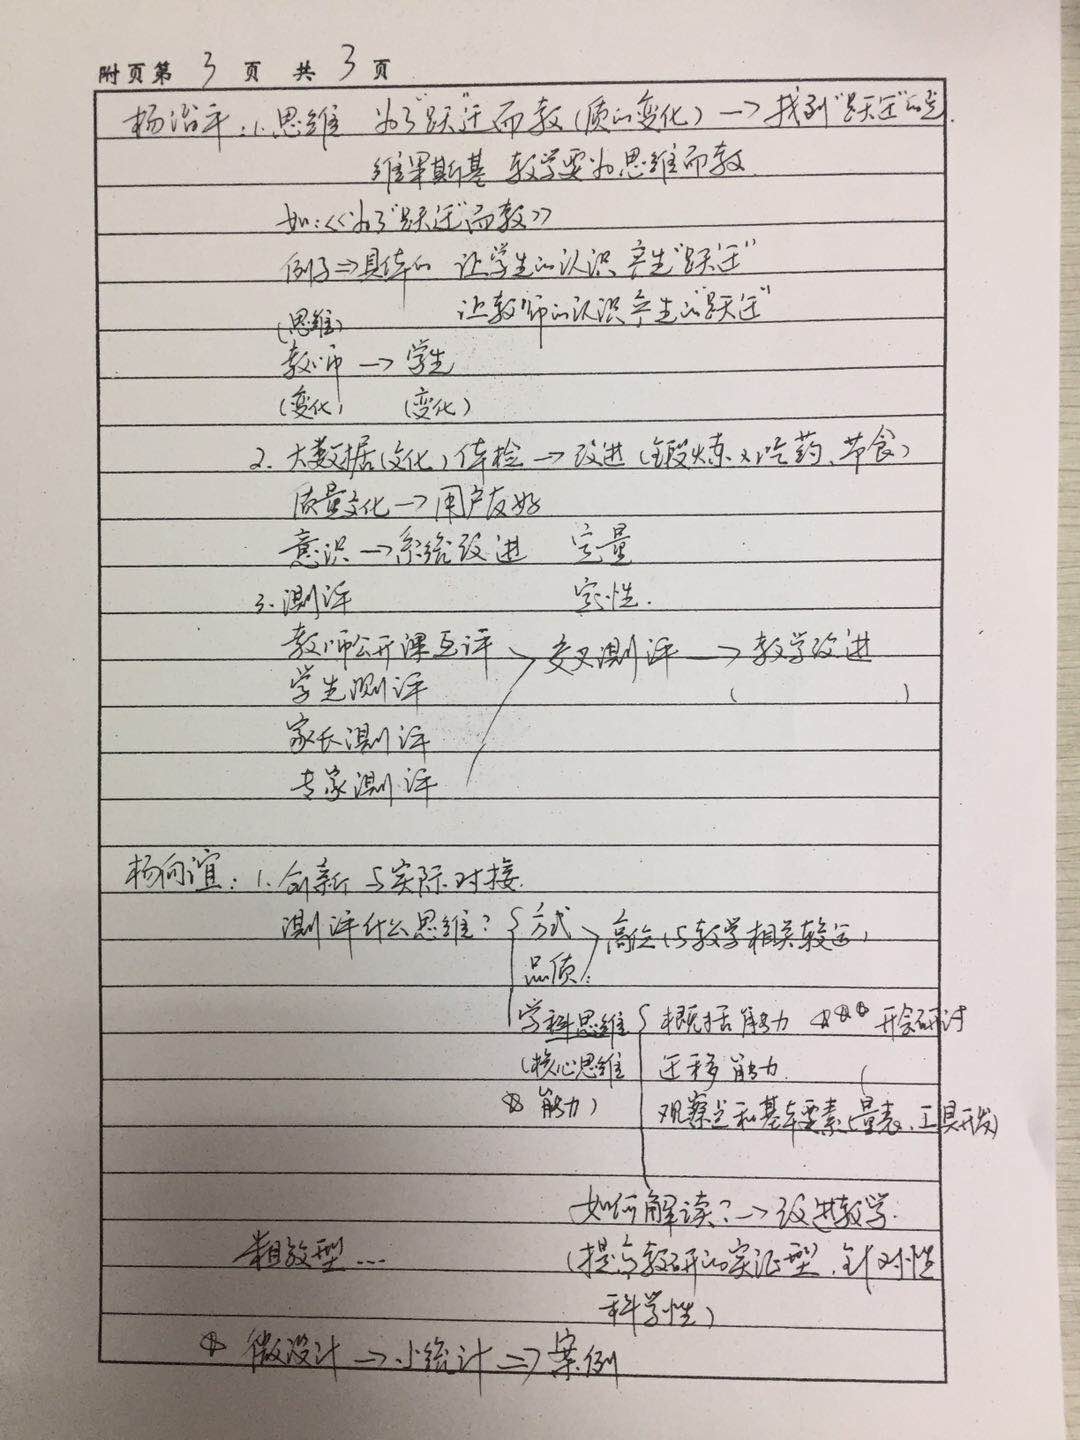 附页第 3 页 共 3 页
杨治平：1. 思维 为了"跃"迁而教（质的变化）→找到"跃迁"的点.
维果斯基 教学要为思维而教.
如：<<为了"跃迁"而教>>
例子⇒具体的 让学生的认识产生"跃迁"
让教师的认识产生的"跃迁"
（思维）
教师 → 学生
（变化） （变化）
2. 大数据（文化）体检 → 改进（锻炼、吃药、节食）
质量文化 → 用户友好
意识 → 系统改进 定量
3. 测评 定性.
教师公开课互评
交叉测评 → 教学改进
学生测评 （ ）
家长测评
专家测评
杨向谊：1. 创新与实际对接.
测评什么思维？ { 方式
高位（与教学相关较远）
品质
学科思维 { 概括能力 开会研讨
（核心思维 迁移能力. （
能力） 观察点和基本要素（量表、工具开发）
如何解读？→ 改进教学.
粗放型… （提高教研的实证型、针对性
科学性）
微设计 → 小统计 ⇒ 案例